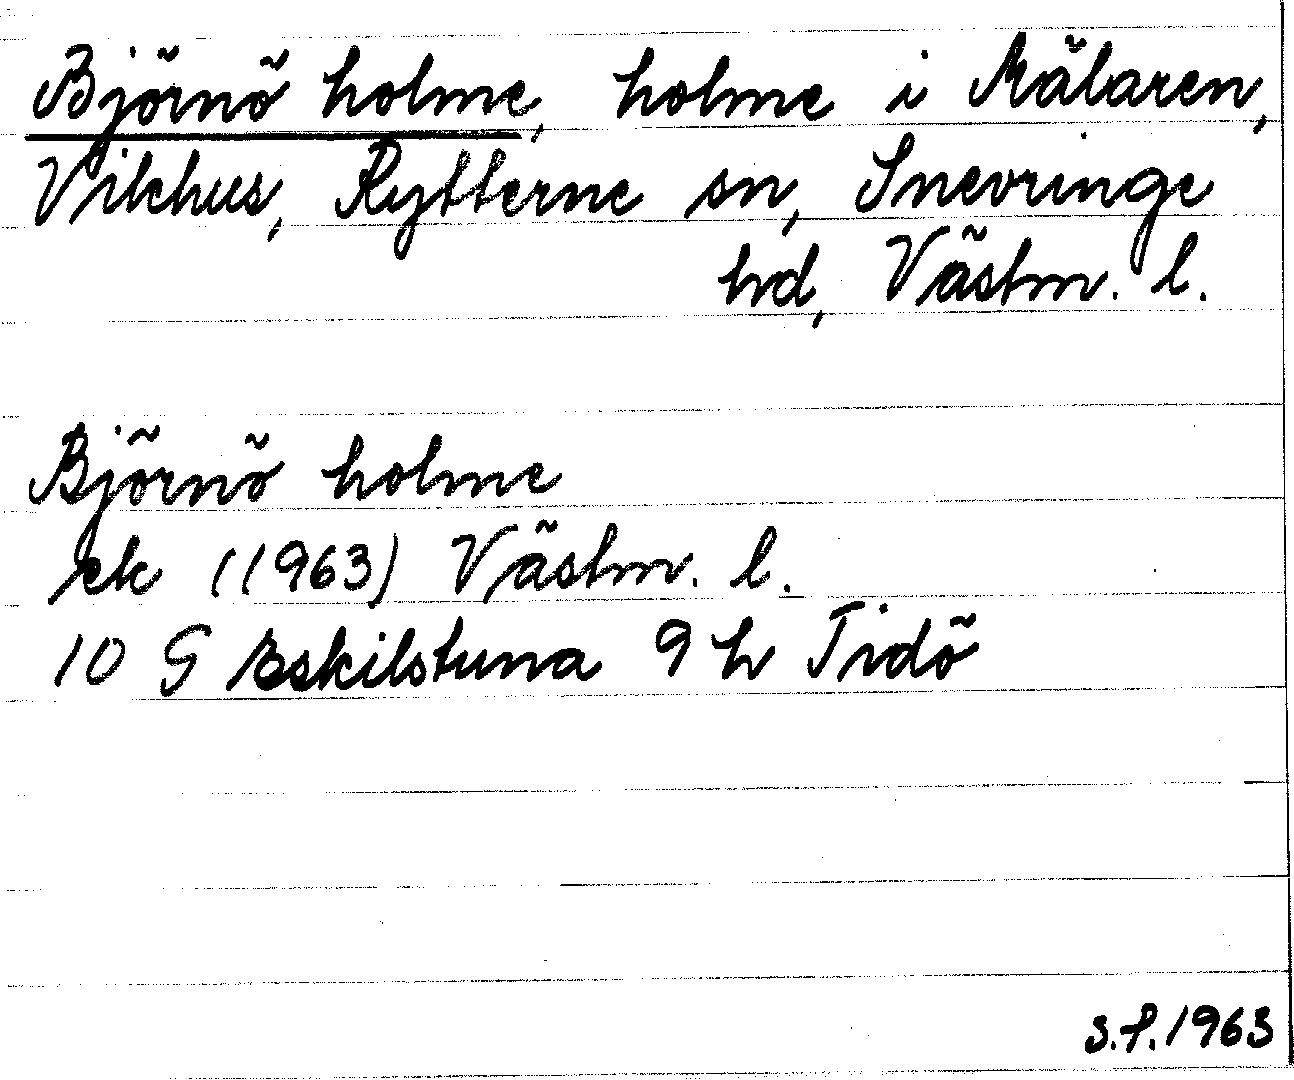 Björnö holme, holme i Mälaren,
Vikhus, Rytterne sn, Snevringe
hd, Västm. l.
Björnö holme
ek (1963) Västm. l.
10 G Eskilstuna 9 h Tidö
S.F. 1963